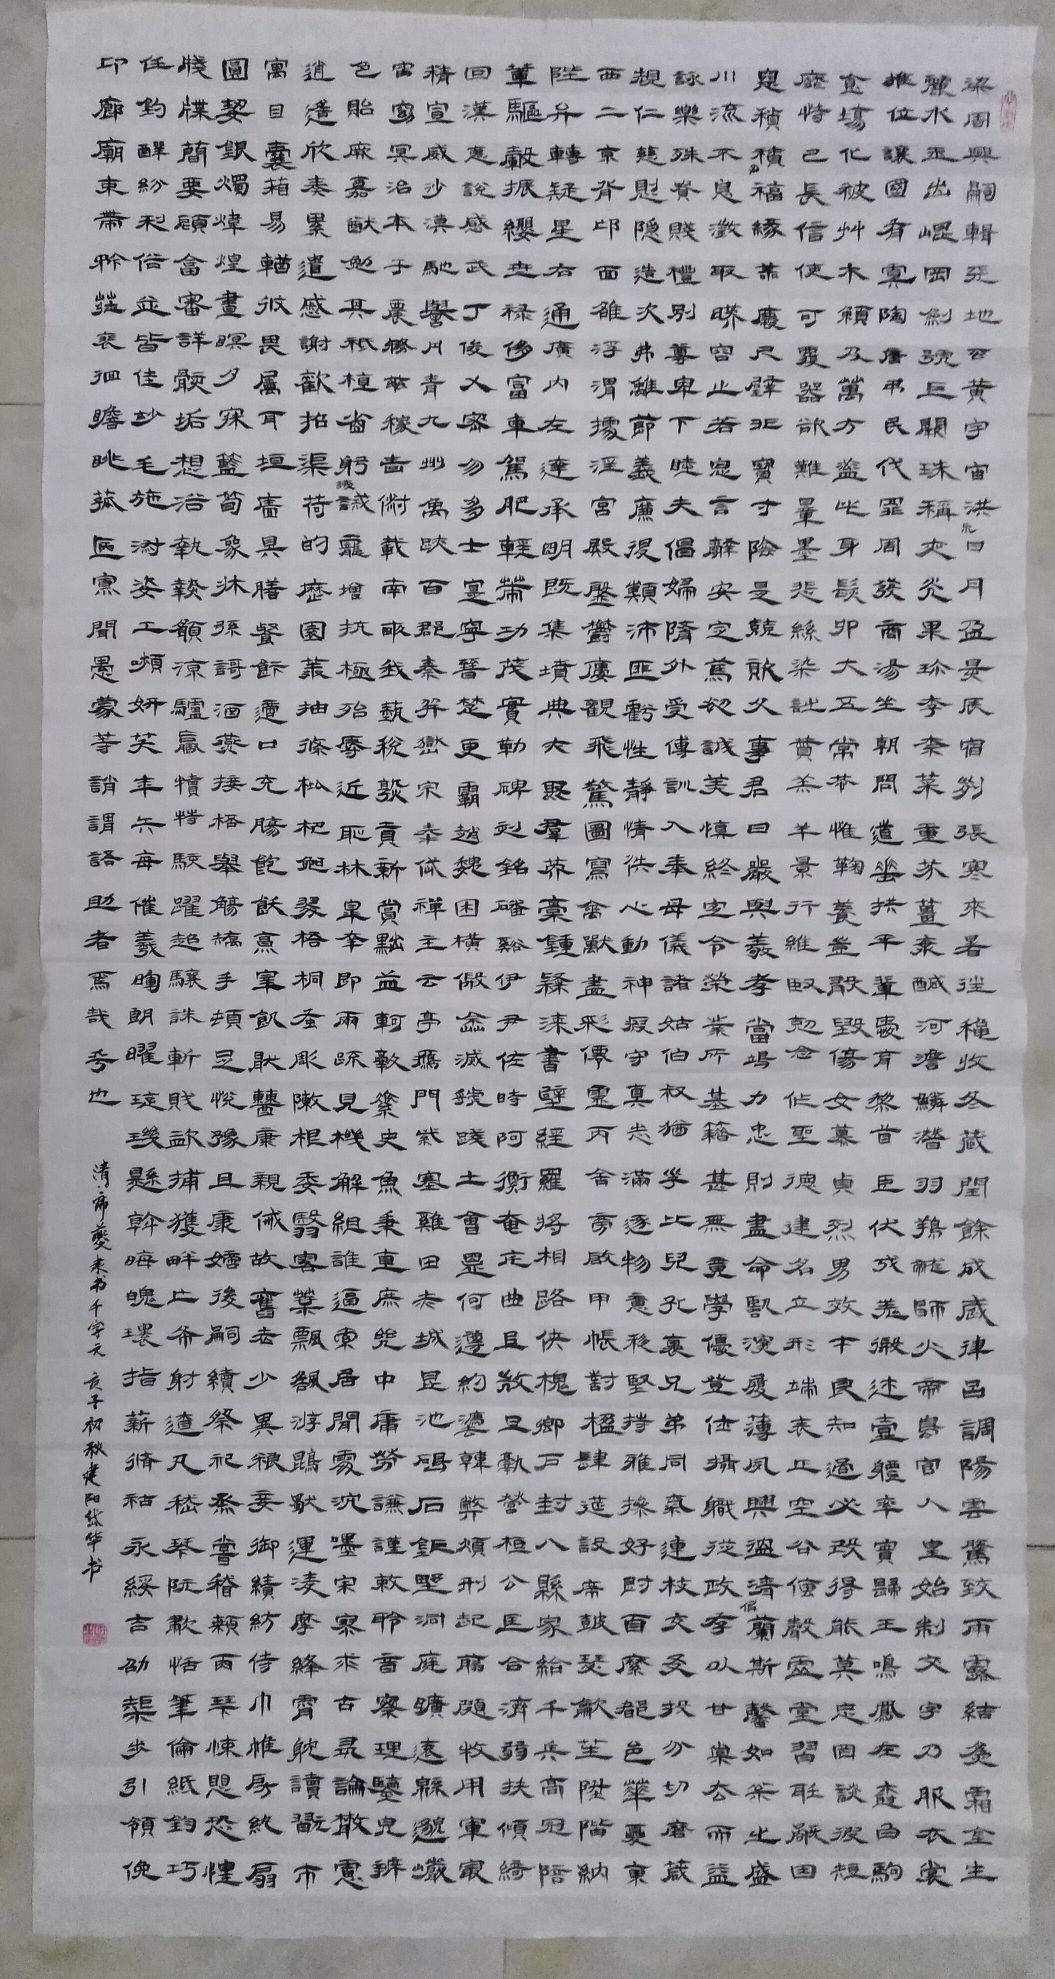 梁周興嗣輯天地玄黃宇宙洪荒日月盈昃辰宿列張寒來暑往秋收冬藏閏餘成歲律呂調陽雲騰致雨露結為霜金生
麗水玉出崐岡劍號巨闕珠稱夜光果珍李柰菜重芥薑海鹹河澹鱗潛羽翔龍師火帝鳥官人皇始制文字乃服衣裳
推位讓國有虞陶唐弔民伐罪周發商湯坐朝問道垂拱平章愛育黎首臣伏戎羌遐邇壹體率賓歸王鳴鳳在樹白駒
食場化被草木賴及萬方蓋此身髮四大五常恭惟鞠養豈敢毀傷女慕貞烈男效才良知過必改得能莫忘罔談彼短
靡恃己長信使可覆器欲難量墨悲絲染詩贊羔羊景行維賢克念作聖德建名立形端表正空谷傳聲虛堂習聽禍因
惡積福緣善慶尺璧非寶寸陰是競資父事君曰嚴與敬孝當竭力忠則盡命臨深履薄夙興溫凊似蘭斯馨如松之盛
川流不息澂取暎容止若思言辭安定篤初誠美慎終宜令榮業所基籍甚無竟學優登仕攝職從政存以甘棠去而益
詠樂殊貴賤禮別尊卑下睦夫倡婦隨外受傅訓入奉母儀諸姑伯叔猶子比兒孔懷兄弟同氣連枝交友投分切磨箴
規仁慈惻隱造次弗離節義廉退顛沛匪虧性靜情逸心動神疲守真志滿逐物意移堅持雅操好爵自縻都邑華夏東
西二京背邙面雒浮渭據涇宮殿盤鬱樓觀飛驚圖寫禽獸畫彩僊靈丙舍旁啟甲帳對楹肆筵設席鼓瑟歙笙陞階納
陛弁轉疑星右通廣內左達承明既集墳典亦聚羣英稾鍾隸漆書壁經羅將相路俠槐卿戶封八縣家給千兵高冠陪
輦驅轂振纓世祿侈富車駕肥輕策功茂實勒碑刻銘磻谿伊尹佐時阿衡奄宅曲阜微旦孰營桓公匡合濟弱扶傾綺
回漢惠說感武丁俊乂密勿多士寔寧晉楚更霸趙魏困橫假途滅虢踐土會盟何遵約法韓弊煩刑起翦頗牧用軍最
精宣威沙漠馳譽丹青九州禹跡百郡秦并嶽宗泰岱禪主云亭鴈門紫塞雞田赤城昆池碣石鉅野洞庭曠遠緜邈巖
宙窈冥治本于農務茲稼嗇俶載南畝我藝稅熟貢新賞黜益軻敦素史魚秉直庶幾中庸勞謙謹敕聆音察理鑒皃辨
色貽厥嘉猷勉其祗植省躬譏誡寵增抗極殆辱近恥林皐幸即兩疏見機解組誰逼索居閒處沉嘿寂寥求古尋論散慮
逍遙欣奏累遣慼謝歡招渠荷的歷園莽抽條枇杷晚翠梧桐蚤彫陳根委翳落葉飄颻游鵾獨運凌摩絳霄耽讀翫市
寓目囊箱易輶攸畏屬耳垣牆具膳餐飯適口充腸飽飫烹宰飢厭糟糠親戚故舊老少異糧妾御績紡侍巾帷房紈扇
圓絜銀燭煒煌晝瞑夕寐藍筍象牀絃歌酒讌接桮舉觴矯手頓足悅豫且康嫡後嗣續祭祀烝嘗稽顙再拜悚懼恐惶
牋牒簡要顧答審詳骸垢想浴執熱願涼驢驘犢特駭躍超驤誅斬賊盜捕獲畔亡布射遼丸嵇琴阮嘯恬筆倫紙鈞巧
任釣釋紛利俗並皆佳妙毛施淑姿工嚬妍笑年矢每催羲暉朗曜琁璣懸斡晦魄環指薪脩祜永綏吉劭榘步引領俛
卬廊廟束帶矜莊裵徊瞻眺孤陋寡聞愚蒙等誚謂語助者焉哉乎也